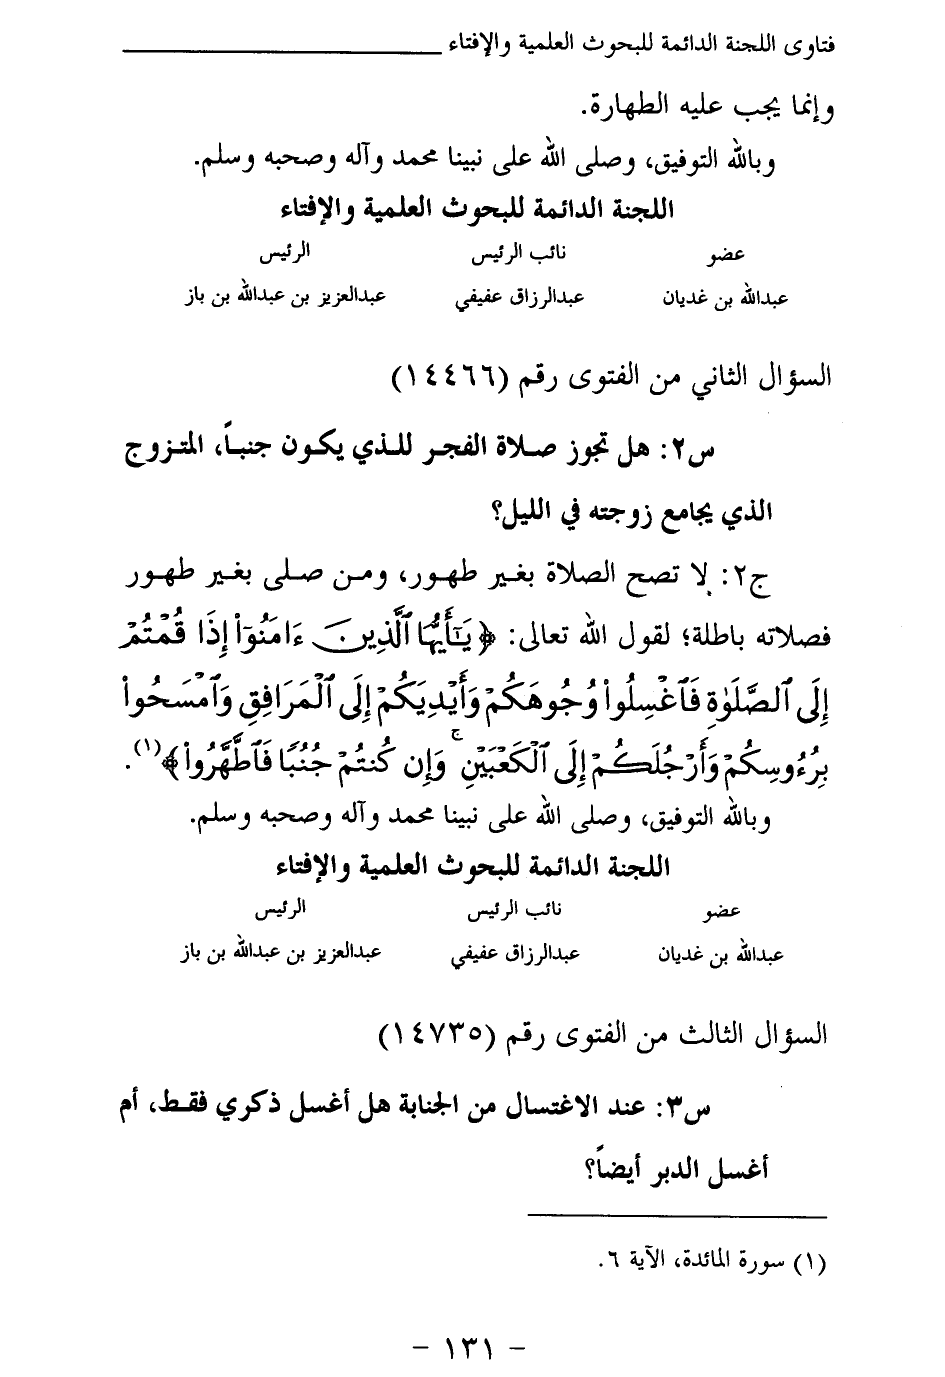 فتاوى اللجنة الدائمة للبحوث العلمية والإفتاء
وإنما يجب عليه الطهارة.
وبالله التوفيق، وصلى الله على نبينا محمد وآله وصحبه وسلم.
اللجنة الدائمة للبحوث العلمية والإفتاء
عضو نائب الرئيس الرئيس
عبدالله بن غديان عبدالرزاق عفيفي عبدالعزيز بن عبدالله بن باز
السؤال الثاني من الفتوى رقم (١٤٤٦٦)
س٢: هل تجوز صلاة الفجر للذي يكون جنباً، المتزوج
الذي يجامع زوجته في الليل؟
ج٢: لا تصح الصلاة بغير طهور، ومن صلى بغير طهور
فصلاته باطلة؛ لقول الله تعالى: ﴿يَٰٓأَيُّهَا ٱلَّذِينَ ءَامَنُوٓا۟ إِذَا قُمْتُمْ
إِلَى ٱلصَّلَوٰةِ فَٱغْسِلُوا۟ وُجُوهَكُمْ وَأَيْدِيَكُمْ إِلَى ٱلْمَرَافِقِ وَٱمْسَحُوا۟
بِرُءُوسِكُمْ وَأَرْجُلَكُمْ إِلَى ٱلْكَعْبَيْنِ ۚ وَإِن كُنتُمْ جُنُبًا فَٱطَّهَّرُوا۟﴾(١).
وبالله التوفيق، وصلى الله على نبينا محمد وآله وصحبه وسلم.
اللجنة الدائمة للبحوث العلمية والإفتاء
عضو نائب الرئيس الرئيس
عبدالله بن غديان عبدالرزاق عفيفي عبدالعزيز بن عبدالله بن باز
السؤال الثالث من الفتوى رقم (١٤٧٣٥)
س٣: عند الاغتسال من الجنابة هل أغسل ذكري فقط، أم
أغسل الدبر أيضاً؟
(١) سورة المائدة، الآية ٦.
- ١٣١ -